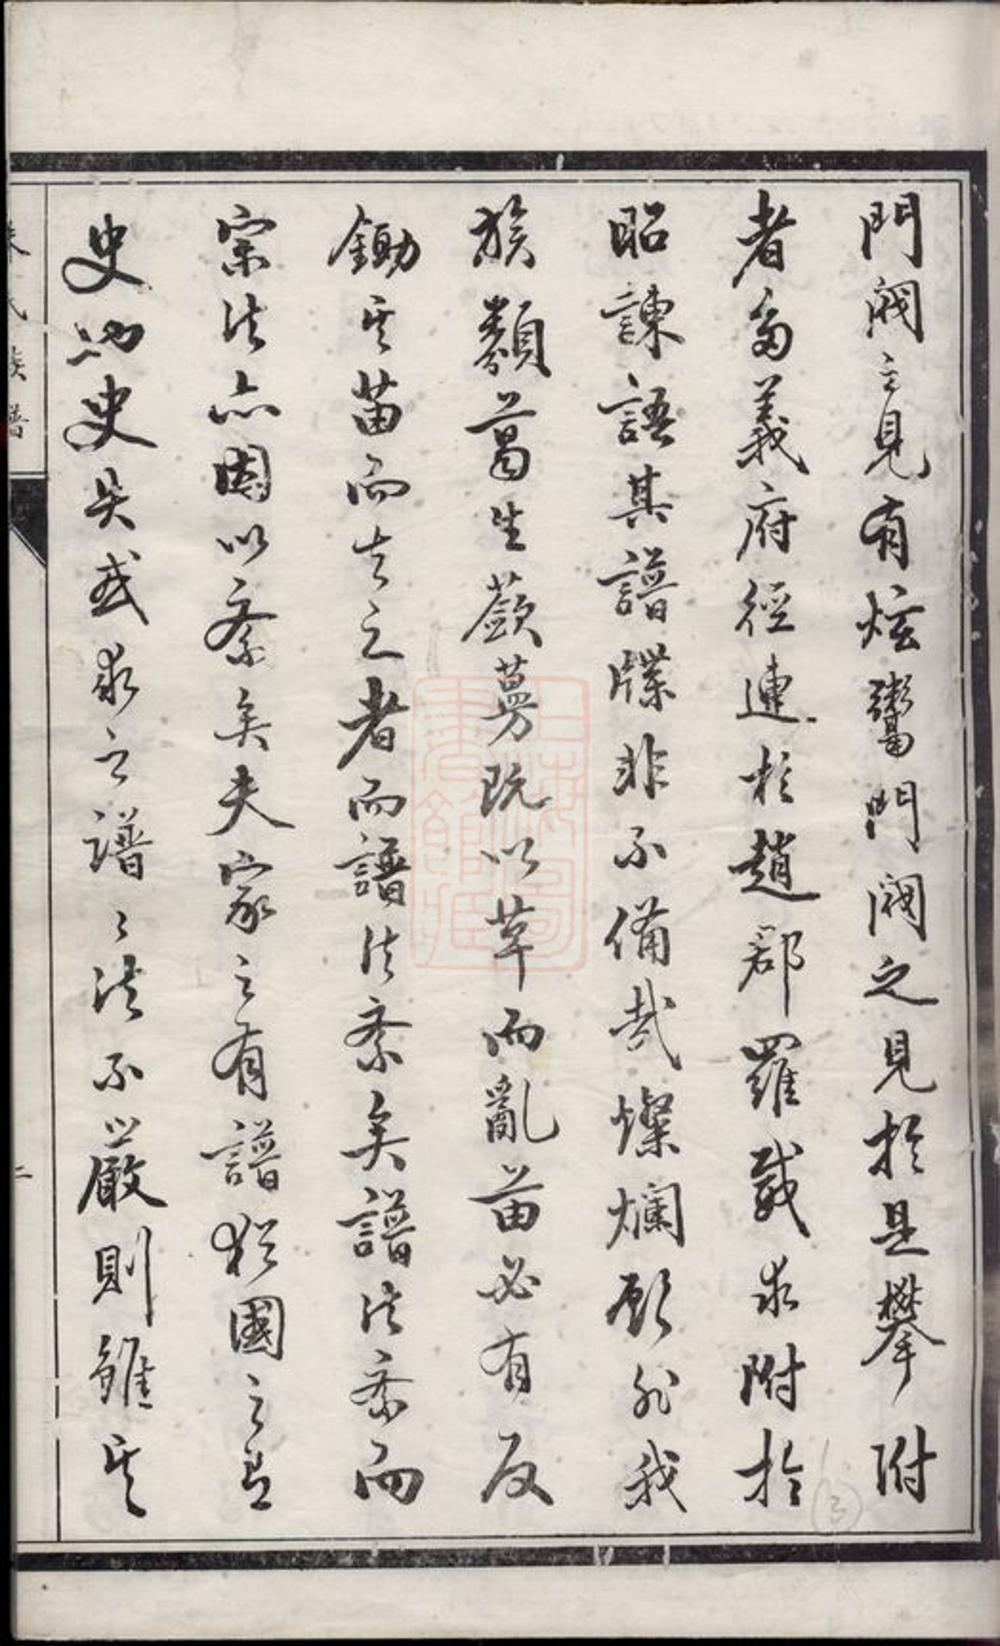 門閥之見有炫鬻門閥之見於是攀附
者多義府徑連於趙郡羅威求附於
昭諫語其譜牒非不備哉燦爛顧非我
族類葛生蔹蔓既以草而亂苗必有反
鋤其苗而去之者而譜法紊矣譜法紊而
宗法亦因以紊矣夫家之有譜猶國之有
史也史失或求之譜譜法不嚴則雖其
氏族譜
二
上海圖書館藏
3